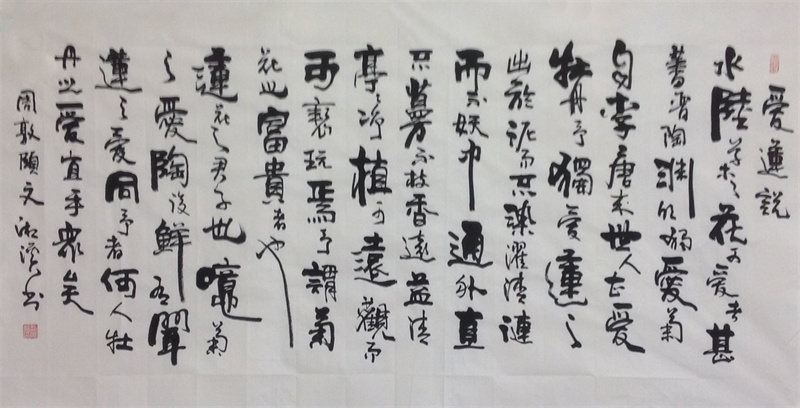 愛蓮説
水陸草木之花可愛者甚
蕃晋陶渊明獨愛菊
自李唐来世人愛
牡丹予獨愛蓮之
出於泥而不染濯清漣
而不妖中通外直
不蔓不枝香遠益清
亭亭净植可遠觀而
不可褻玩焉予謂菊
花也富貴者也
蓮花之君子也噫菊
之愛陶後鮮有聞
蓮之愛同予者何人牡
丹之愛宜乎衆矣
周敦頤文书